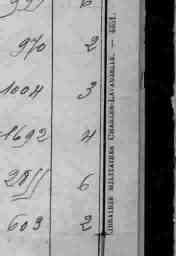 970 2
1004 3
1692 4
6
603 2
LIBRAIRIE MILITAIRES CHARLES-LAVAUZELLE. —